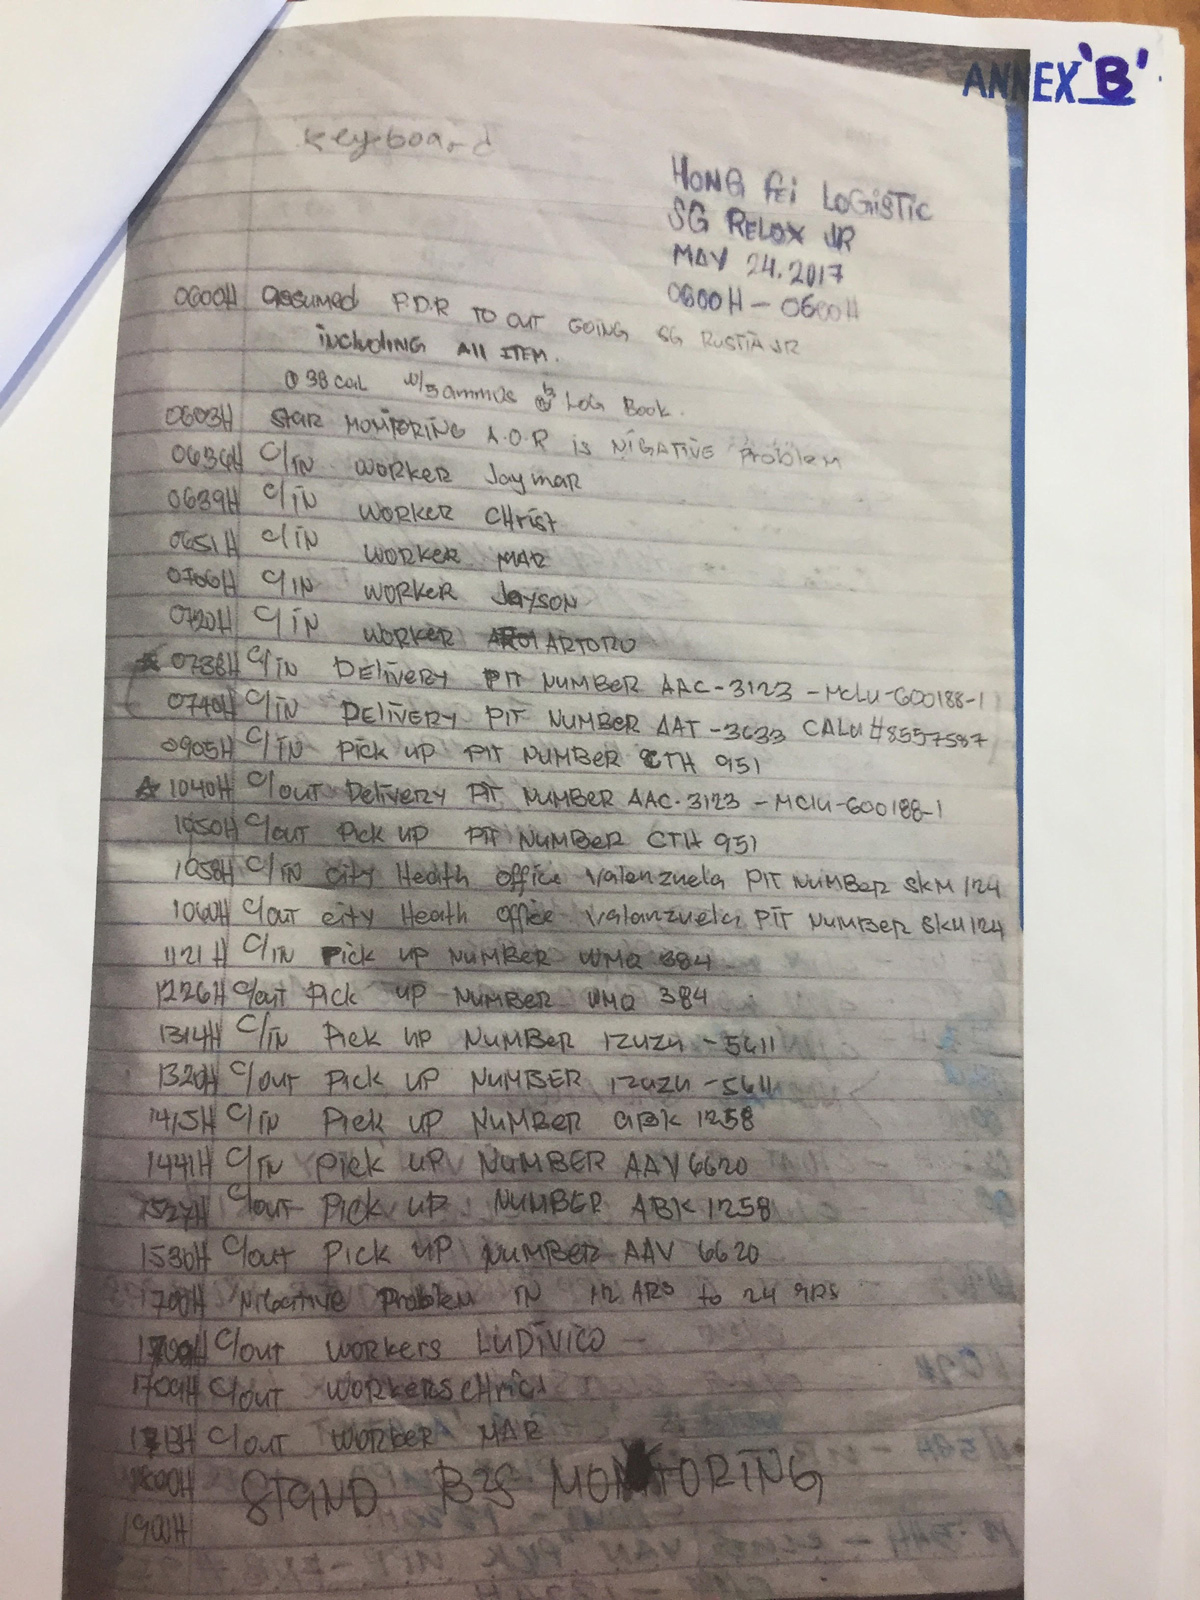 ANNEX 'B'
keyboard
HONG FEI LOGISTIC
SG RELOX JR
MAY 24, 2017
0600H - 0600H
0600H assumed P.D.R TO OUT GOING SG RUSTIA JR
including All ITEM.
① 38 cal w/5 ammos Log Book.
0603H star MONITORING A.O.R is NIGATIVE Problem
0636H C/IN WORKER Jaymar
0639H C/IN WORKER CHrist
0651H C/IN WORKER MAR
0706H C/IN WORKER JaysoN
0720H C/IN WORKER ARTORO
☆ 0738H C/IN DElivERY PlT NUMBER AAC-3123 - MCLU-600188-1
0740H C/IN DELIVERY PlT NUMBER AAT-3633 CALU#8557587
0905H C/IN Pick up PlT NUMBER CTH 951
☆ 1040H C/OUT Delivery PlT NUMBER AAC-3123 - MCLU-600188-1
1050H C/out Pick up PlT NUMBER CTH 951
1058H C/IN city Heath office Valenzuela PlT NUMBER SKM 124
C/out city Heath office Valanzuela PlT NUMBER
1121H C/IN Pick up NUMBER WMQ 384
1226H C/out Pick up NUMBER WMQ 384
1314H C/IN Pick up NUMBER IZUZU-5611
1320H C/out Pick up NUMBER IZUZU-5611
1415H C/IN Pick up NUMBER 1258
1441H C/IN Pick UP NUMBER AAV 6620
1527H C/out Pick up NUMBER ABK 1258
1530H C/out Pick up NUMBER AAV 6620
1700H Nigative Problem IN 12 to 24
C/out workers LUDIVICO -
1709H C/out workers
C/out worker MAR
1800H STAND BY MONITORING
1900H